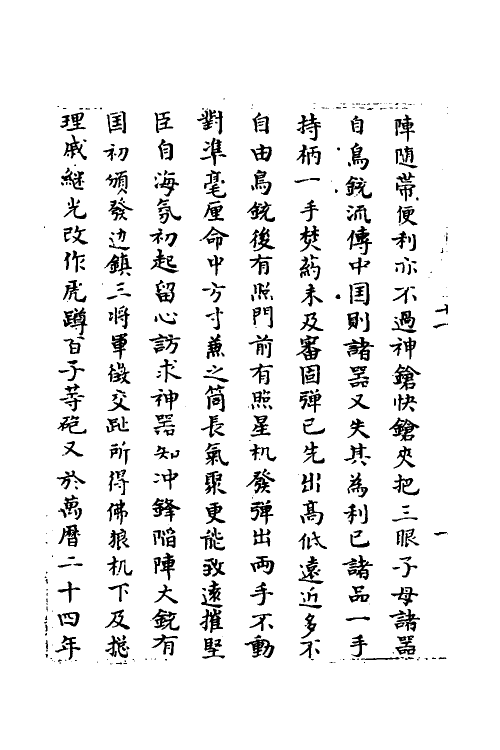 陣隨帶便利亦不過神鎗快鎗夾把三眼子母諸器
自鳥銃流傳中囯則諸器又失其為利已諸品一手
持柄一手焚葯未及審固弹已先出髙低遠近多不
自由鳥銃後有照門前有照星机發弹出両手不動
對准毫厘命中方寸兼之筒長氣聚更能致遠摧堅
臣自海氛初起留心訪求神器知冲鋒陷陣大銃有
囯初頒發边鎮三将軍徴交趾所得佛狼机下及揔
理戚継光改作虎蹲百子等砲又於萬曆二十四年